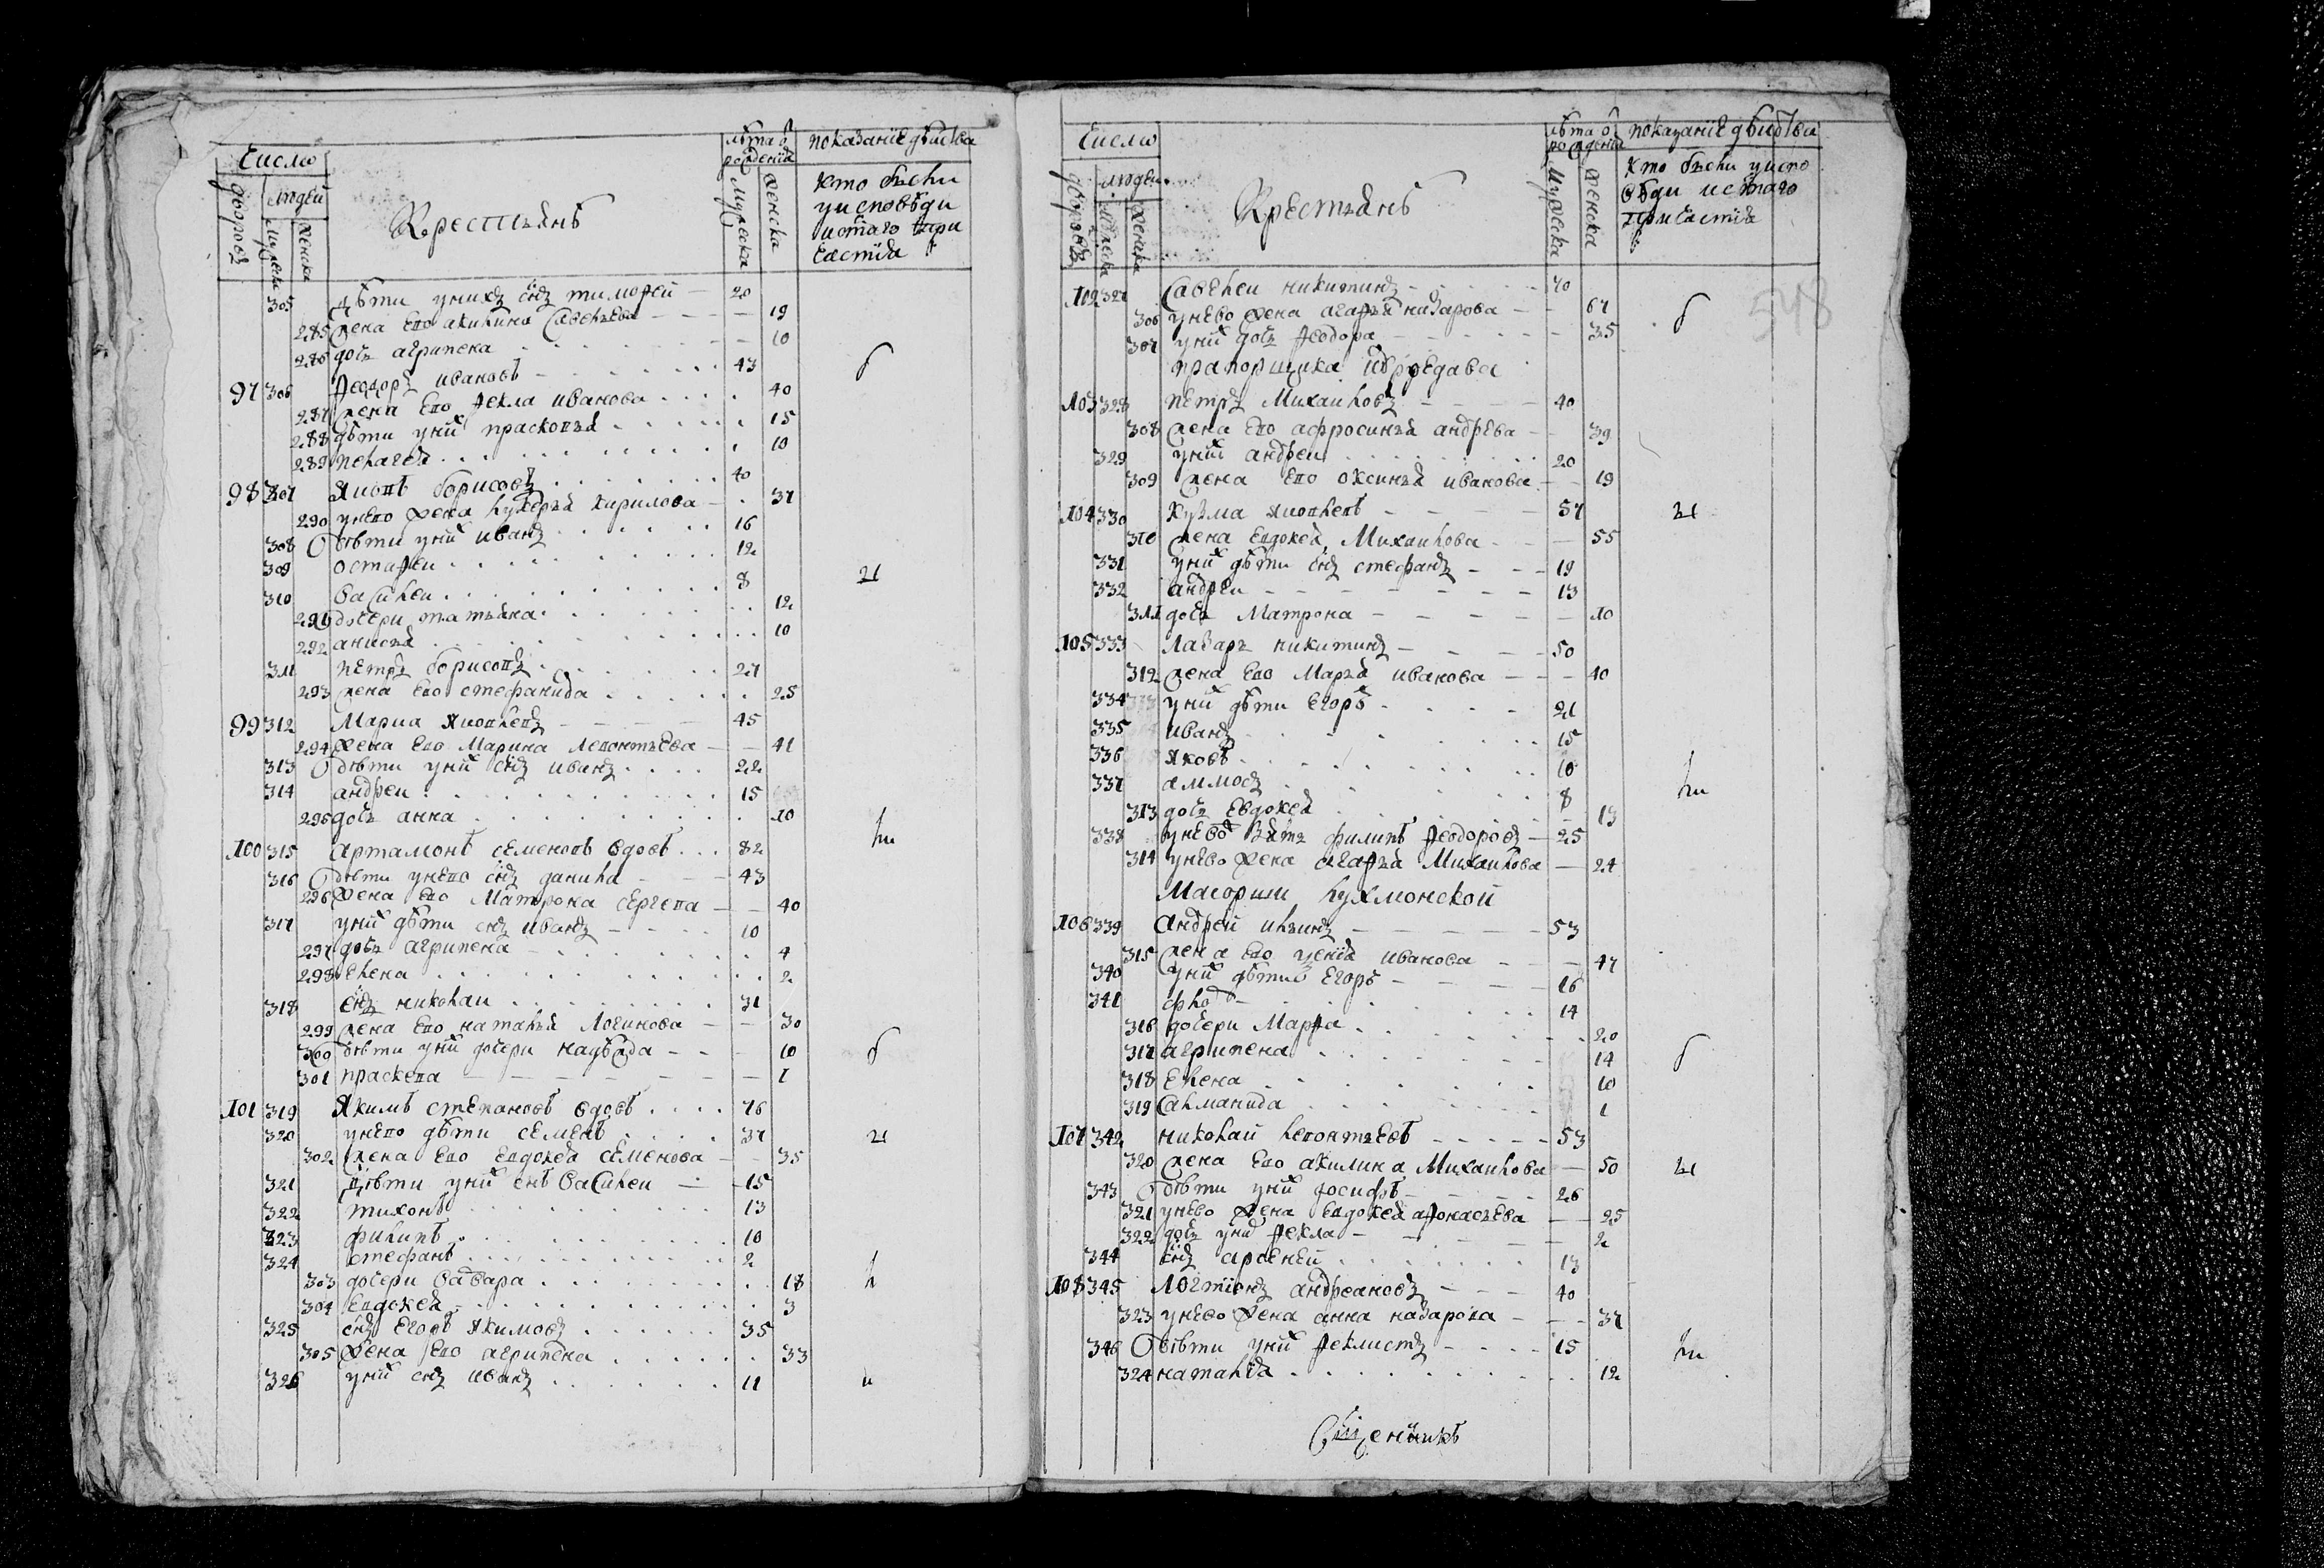 Число
лѣта ѿ рожденїѧ
показанїе дѣиства
дворовъ
людей
мужеска
женска
Крестьянъ
мужеска
женска
кто были
у исповѣди
и стаго при
частїѧ
305 дѣти у нихъ снъ тимофеи 20
285 жена ево акилина савельева 19
286 дочь агрипена 10
97 306 Ѳеодоръ ивановъ 43
287 жена ево Ѳекла иванова 40
288 дѣти у ниⷯ прасковья 15
289 пелагея 10
98 307 Яковъ борисовъ 40
290 у нево жена лукерья кирилова 37
308 дѣти у ниⷯ иванъ 16
309 остаѳеи 12
310 василеи 8
291 дочери татьяна 12
292 анисья 10
311 петръ борисовъ 27
293 жена ево стефанида 25
99 312 Яковлевъ 45
294 жена ево Марина Левонтьева 41
313 дѣти у ниⷯ снъ иванъ 22
314 андреи 15
295 дочь анна 10
100 315 артамонъ семеновъ вдовъ 82
316 дѣти у нево снъ данила 43
296 жена ево Матрона сергева 40
317 у ниⷯ дѣти снъ иванъ 10
297 дочь агрипена 4
298 елена 2
318 снъ николаи 31
299 жена ево наталья Логинова 30
300 дѣти у ниⷯ дочери 10
301 праскева 1
101 319 Якимъ степановъ вдовъ 76
320 у нево дѣти семенъ 37
302 жена ево евдокея семенова 35
321 дѣти у ниⷯ снъ василеи 15
322 тихонъ 13
323 филипъ 10
324 стефанъ 2
303 дочери варвара 18
304 евдокея 3
325 снъ егоръ Якимовъ 35
305 жена ево агрипена 33
326 у ниⷯ снъ иванъ 11
Число
лѣта ѿ рожденїѧ
показанїе дѣиства
дворовъ
людеи
мужеска
женска
Крестьянъ
мужеска
женска
кто были у испо
вѣди и стаго
причастїѧ
548
102 327 Савелеи никитинъ 70
306 у нево жена агаѳья назарова 67
307 у ниⷯ дочь Ѳеодора 35
прапорщика
103 328 петръ Михаиловъ 40
308 жена ево афросинья андрева 39
329 у ниⷯ андреи 20
309 жена ево оксинья иванова 19
104 330 кузма яковлевъ 57
310 жена евдокея Михаилова 55
331 у ниⷯ дѣти снъ стефанъ 19
332 андреи 13
311 дочь Матрона 10
105 333 Лазарь никитинъ 50
312 жена ево Марья иванова 40
334 у ниⷯ дѣти егоръ 21
335 иванъ 15
336 яковъ 10
337 аммосъ 8
313 дочь евдокея 13
338 у нево зять филипъ Ѳеодоровъ 25
314 у нево жена агаѳья Михаилова 24
Маорши Лухмонской
106 339 андрей ильинъ 53
315 жена ево иванова 47
340 у ниⷯ дѣти егоръ 16
341 14
316 дочери Марѳа 20
317 агрипена 14
318 елена 10
319 1
107 342 николай левонтьевъ 53
320 жена ево акилина Михаилова 50
343 дѣти у ниⷯ 26
321 у нево жена евдокея аѳонасьева 25
322 дочь у ниⷯ Ѳекла 2
344 снъ арсеней 13
108 345 андреановъ 40
323 у нево жена анна назарова 37
346 дѣти у ниⷯ Ѳеклистъ 15
324 наталїя 12
Сщенникъ